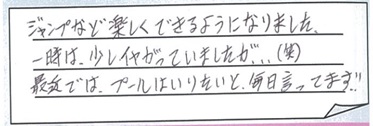 ジャンプなど楽しくできるようになりました。
一時は、少しイヤがっていましたが、、、(笑)
最近では、プールはいりたいと、毎日言ってます!!